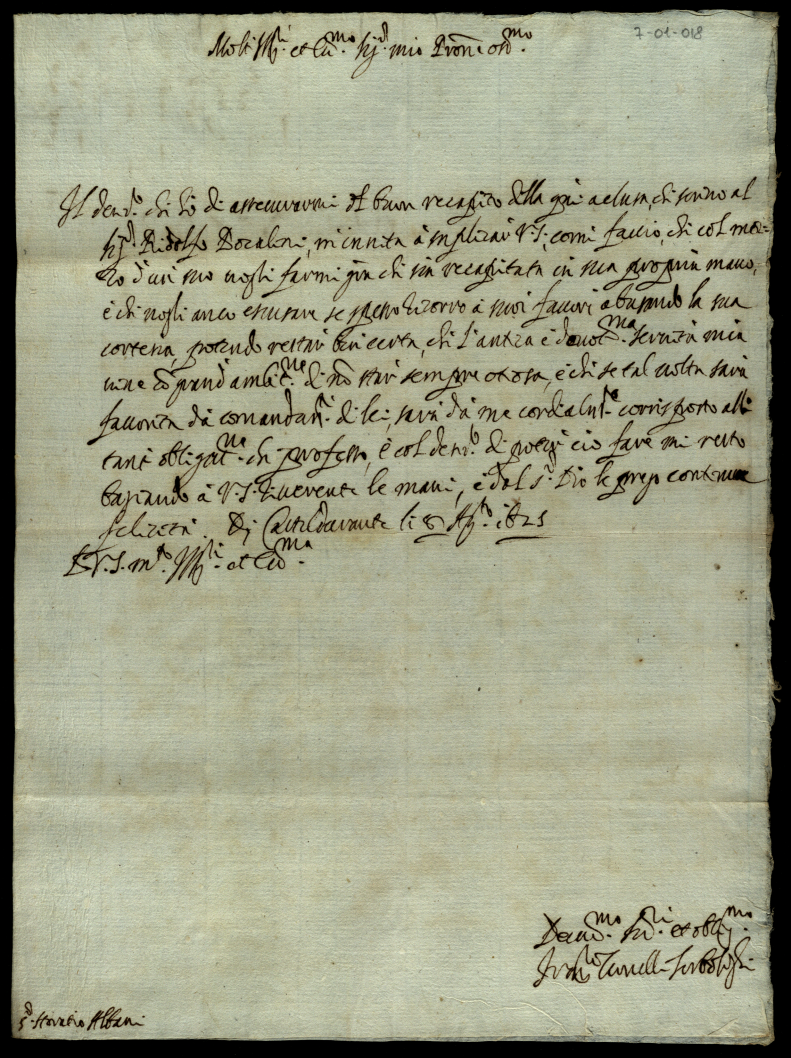 7-01-018
Molt Ill.ri et Ecc.mo Sig.r mio Pron.e oss.mo
Il desid.o che hò di assecurarmi del buon recapito della qui aclusa, che scrivo al
Sig.r Ridolfo Bocalini, m'invita à suplicar V.S., come faccio, che col mez-
zo d'un suo vogli farmi gra che sia recapitata in sua propria mano,
è che vogli anco escusare se spesso ricorro à suoi favori abusando la sua
cortesia, potendo restar ben certa, che l'antica è devot.ma servitù mia
vive cō grand'ambit.ne di nō star sempre otiosa, è che se tal volta sarà
favorita dà comandam.ti di lei, sarà dà me cordialm.te corrisposto alle
tante obligat.ne che professo, è col desid.o di poter ciò fare mi resto
basciando à V.S. riverente le mani, è dal S.r Dio le prego continua
felicità. Di Casteldurante li 8 Ag.to 1625
D V.S. m.to Ill.ri et Ecc.ma
Devot.mo Ser.ri et oblig.mo
S.r Horatio Albani